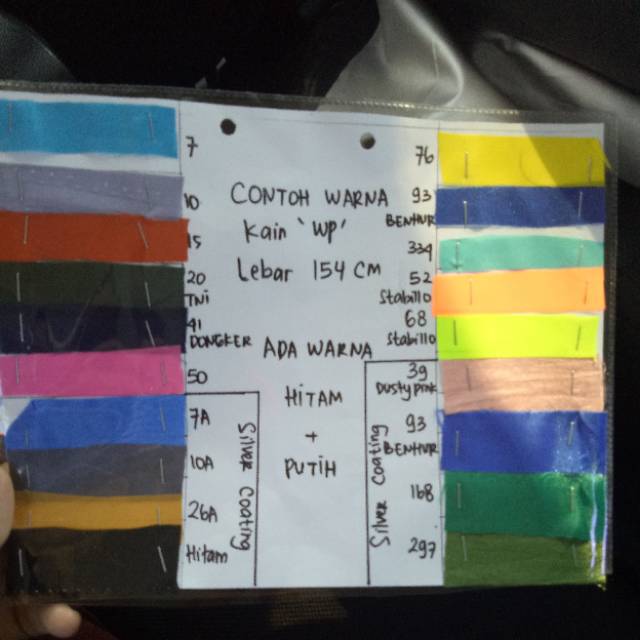 7
10
15
20
TNi
41
DONGKER
50
7A
10A
26A
Hitam
Silver Coating
CONTOH WARNA
Kain 'WP'
Lebar 154 CM
ADA WARNA
HITAM
+
PUTIH
76
93
BENHUR
334
52
Stabillo
68
Stabillo
39
Dusty pink
93
BENHUR
168
297
Silver Coating